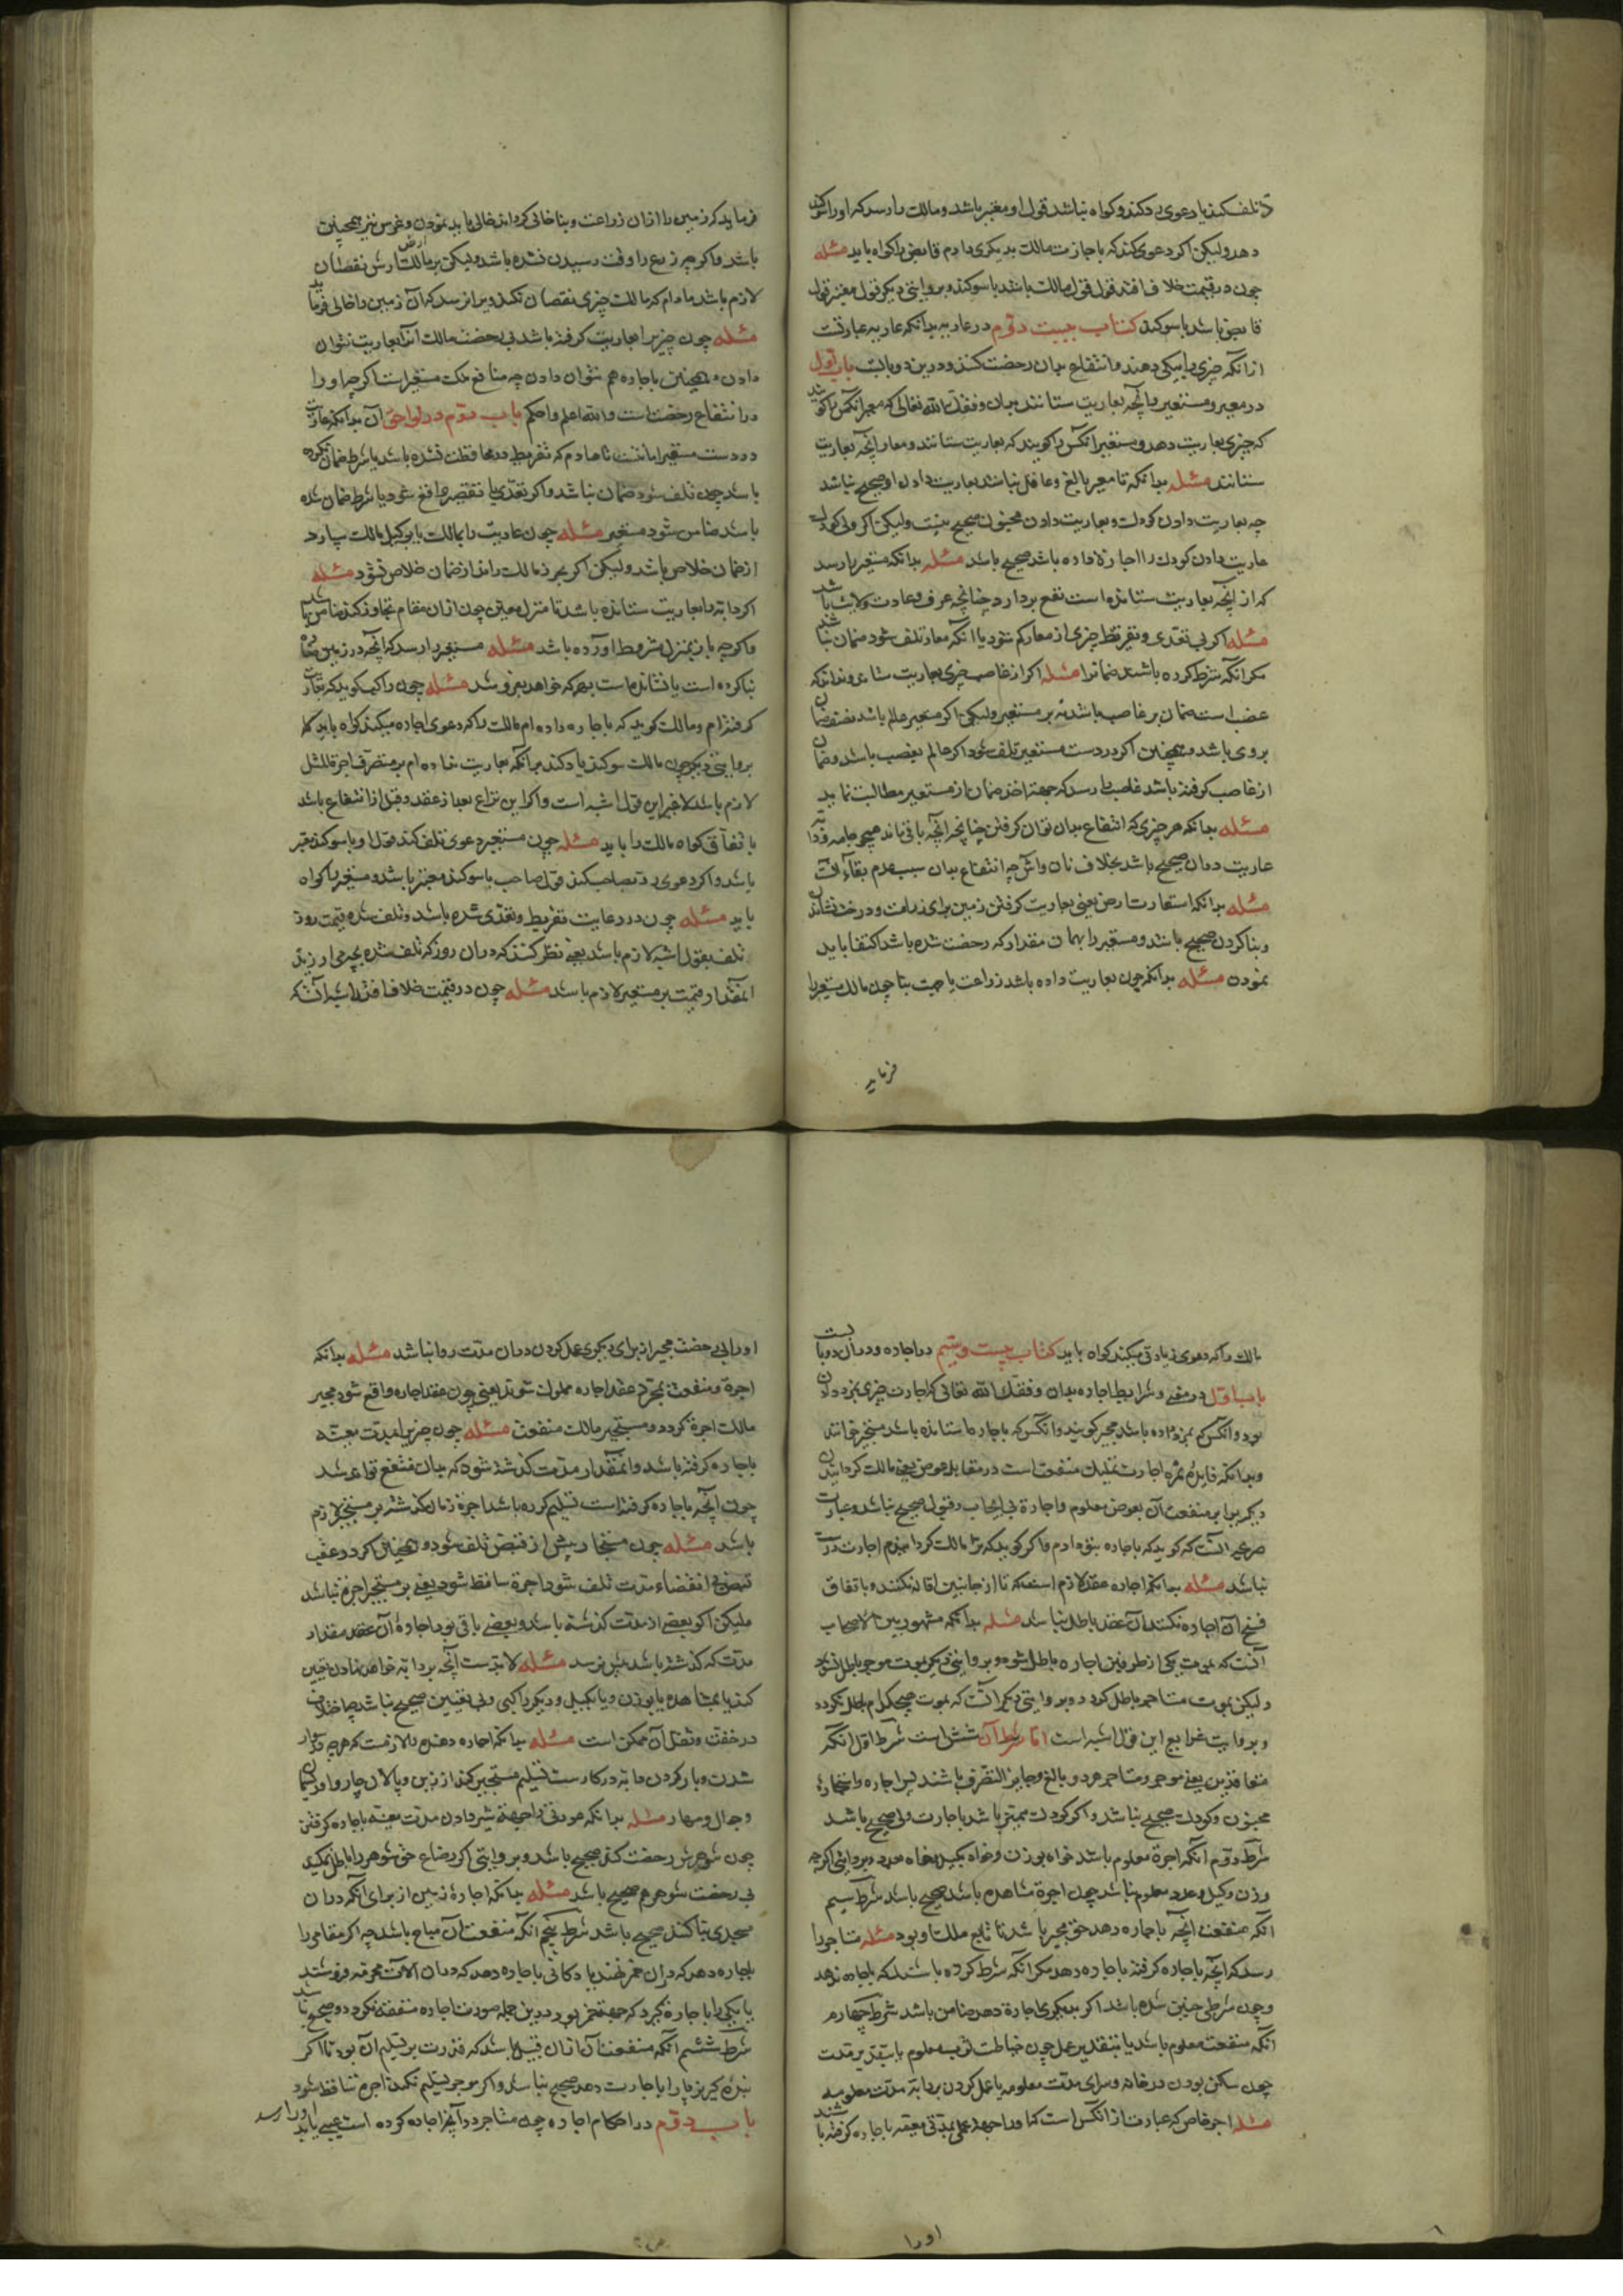 تلف کند یا دعوی رد کند و کواه نباشد قول او معتبر باشد و مالک را رسد که او را سوکند
دهد ولیکن اکر دعوی کند که باجازت مالک بدیکری دادم قابض را کواه باید مسئله
چون در قیمت خلاف افتد قول قول مالک باشد با سوکند و بروایتی دیکر قول معتبر قول
قابض باشد با سوکند کتاب بیست دوم در عاریه بدانکه عاریه عبارتست
از آنکه چیزی را بیکی دهند و انتفاع بدان رخصت کنند و درین دو بابست باب اول
در معیر و مستعیر و آنچه بعاریت ستانند بدان وفقک الله تعالی که معیر آنکس را کویند
که چیزی بعاریت دهد و مستعیر آنکس را کویند که بعاریت ستانند و معار آنچه بعاریت
ستانند مسئله بدانکه تا معیر بالغ و عاقل نباشد بعاریت دادن او صحیح نباشد
چه بعاریت دادن کودک و بعاریت دادن مجنون صحیح نیست ولیکن اکر ولی کودک
عاریت دادن کودک را اجازة داده باشد صحیح باشد مسئله بدانکه مستعیر را رسد
که از آنچه بعاریت ستانده است نفع بردارد چنانچه عرف و عادت ولایت باشد
مسئله اکر بی تعدی و تفریط چیزی از معار کم شود یا آنکه معار تلف شود ضمان نباشد
مکر آنکه شرط کرده باشند ضمانرا مسئله اکر از غاصب چیزی بعاریت ستاند و نداند که
غصب است ضمان بر غاصب باشد نه بر مستعیر ولیکن اکر مستعیر عالم باشد بغصب ضمان
بر وی باشد و همچنین اکر در دست مستعیر تلف شود اکر عالم بغصب باشد و ضمان
از غاصب کرفته باشد غاصب را رسد که جهة اخذ ضمان از مستعیر مطالبت نماید
مسئله بدانکه هر چیزی که انتفاع بدان توان کرفتن چنانچه آنچه باقی ماند همچو جامه و دابه
عاریت دادن صحیح باشد بخلاف نان و آش چه انتفاع بدان سبب عدم بقاء آنست
مسئله بدانکه استعارت ارض یعنی بعاریت کرفتن زمین برای زراعت و درخت نشاندن
و بنا کردن صحیح باشد و مستعیر را بهمان مقدار که رخصت شده باشد اکتفا باید
نمودن مسئله بدانکه چون بعاریت داده باشد زراعت یا جهت بنا چون مالک مستعیر را
فرماید
فرماید که زمین را از آن زراعت و بنا خالی کردان خالی باید نمودن و غرس نیز همچنین
باشد و اکر چه زرع را وقت رسیدن نشده باشد ولیکن بر مالک ارض ارش نقصان
لازم باشد مادام که مالک چیزی نقصان نکند ویرا نرسد که آن زمین را خالی فرماید
مسئله چون چیزیرا بعاریت کرفته باشد بی رخصت مالک آنرا بعاریت نتوان
دادن و همچنین باجاره هم نتوان دادن چه منافع ملک مستعیر نیست اکر چه او را
در انتفاع رخصت است والله اعلم و احکم باب دوم در لواحق آن بدانکه عاریت
در دست مستعیر امانتست مادام که تفریط در محافظت نشده باشد یا شرط ضمان نکرده
باشد چون تلف شود ضمان نباشد و اکر تعدی یا تقصیر واقع شود یا شرط ضمان شده
باشد ضامن شود مستعیر مسئله چون عاریت را بمالک یا بوکیل مالک سپارد
از ضمان خلاص باشد ولیکن اکر بحرز مالک راند از ضمان خلاص نشود مسئله
اکر دابه را بعاریت ستانده باشد تا منزل معین چون از آن مقام تجاوز کند ضامن باشد
و اکر چه باز بمنزل مشروط آورده باشد مسئله مستعیر را رسد که آنچه در زمین معار
بنا کرده است یا نشانده است بهر که خواهد بفروشد مسئله چون راکب کوید که بعاریت
کرفته ام و مالک کوید که باجاره داده ام مالک را که دعوی اجاره میکند کواه باید اما
بروایتی دیکر چون مالک سوکند یاد کند برآنکه بعاریت نداده ام بر متصرف اجرة المثل
لازم باشد لا غیر این قول اشبه است و اکر این نزاع بعد از عقد و قبل از انتفاع باشد
باتفاق کواه مالک را باید مسئله چون مستعیر دعوی تلف کند قول او با سوکند معتبر
باشد و اکر دعوی رد بصاحب کند قول صاحب با سوکند معتبر باشد و مستعیر را کواه
باید مسئله چون در رعایت تفریط و تعدی شده باشد و تلف شده قیمت روز
تلف بقول اشبه لازم باشد یعنی نظر کنند که در آن روز که تلف شده بچه می ارزید
آنقدار قیمت بر مستعیر لازم باشد مسئله چون در قیمت خلاف افتد اشبه آنست که
مالک را که دعوی زیادتی میکند کواه باید کتاب بیست و سیم در اجاره و در آن دو بابست
باب اول در معنی و شرایط اجاره بدان وفقک الله تعالی که اجارت چیزی بمزد دادن
بود و آنکس که بمزد داده باشد مجیر کویند و آنکس که باجاره ستانده باشد مستجیر خوانند
و بدانکه فایده و ثمره اجارت تملیک منفعت است در مقابله عوض یعنی مالک کردانیدن
دیکری برابر منفعت آن بعوض معلوم و اجارة بی ایجاب و قبول صحیح نباشد و عبارت
صریح آنست که کوید که باجاره بتو دادم و اکر کوید که ترا مالک کردانیدم اجارت درست
نباشد مسئله بدانکه اجاره عقد لازم است که تا از جانبین اقاله نکنند و باتفاق
فسخ آن اجاره نکنند آن عقد باطل نباشد مسئله بدانکه مشهور بین الاصحاب
آنست که بموت یکی از طرفین اجاره باطل شود و بروایتی دیکر بموت موجر باطل نشود
ولیکن بموت مستاجر باطل کردد و بروایتی دیکر آنست که بموت هیچکدام باطل نکردد
و بروایت شرایع این قول اشبه است اما شرط آن شش است شرط اول آنکه
متعاقدین یعنی موجر و مستاجر هر دو بالغ و جایز التصرف باشند پس اجاره و استجاره
مجنون و کودک صحیح نباشد و اکر کودک ممیز باشد باجازت ولی صحیح باشد
شرط دوم آنکه اجرة معلوم باشد خواه بوزن و خواه بکیل و خواه بعدد و بروایتی اکر چه
وزن و کیل و عدد معلوم نباشد چون اجرة مشاهده باشد صحیح باشد شرط سیم
آنکه منفعت آنچه باجاره دهد حق مجیر باشد تا تابع ملک او بود مسئله مستاجر را
رسد که آنچه باجاره کرفته باجاره دهد مکر آنکه شرط کرده باشند که باجاره ندهد
و چون شرطی چنین شده باشد اکر بدیکری اجارة دهد ضامن باشد شرط چهارم
آنکه منفعت معلوم باشد یا بتقدیر عمل چون خیاطت ثوب معلوم یا بتقدیر مدت
چون سکنی بودن در خانه و سرای مدت معلومه یا عمل کردن بر دابه مدت معلومه
مسئله اجیر خاص که عبارت از آنکس است که او را جهة عملی بمدتی معینه باجاره کرفته باشند
اورا
او را بی رخصت مجیر از برای دیکری عمل کردن در آن مدت روا نباشد مسئله بدانکه
اجرة و منفعت بمجرد عقد اجاره مملوک شوند یعنی چون عقد اجاره واقع شود مجیر
مالک اجرة کردد و مستجیر مالک منفعت مسئله چون چیزیرا بمدت معینه
باجاره کرفته باشد و آنقدار مدت کذشته شود که بدان منتفع تواند شد
چون آنچه باجاره کرفته است تسلیم کرده باشد اجرة زمان کذشته بر مستجیر لازم
باشد مسئله چون مستجار پیش از قبض تلف شود و همچنین اکر در عقب
قبض و انقضاء مدت تلف شود اجرة ساقط شود یعنی بر مستجیر اجرة نباشد
ولیکن اکر بعضی از مدت کذشته باشد و بعضی باقی بود اجارة آن عقد مقدار
مدت که کذشته باشد پس نرسد مسئله لابدست آنچه بر دابه خواهد نهادن تعیین
کند یا بمشاهده یا بوزن و یا بکیل و دیکر راکبی ولی تعیین صحیح نباشد چه اختلاف
در خفت و ثقل آن ممکن است مسئله بدانکه اجاره دهنده را لازمست که هر چه در کار
شدن و بار کردن دابه در کارست تسلیم مستجیر کند از زین و پالان چاروا و ریسمان
و جوال و مهار مسئله بدانکه عورتی را جهة شیر دادن مدت معینه باجاره کرفتن
چون شوهرش رخصت کند صحیح باشد و بروایتی اکر رضاع حق شوهر را باطل نکند
بی رخصت شوهر هم صحیح باشد مسئله بدانکه اجارة زمین از برای آنکه در آن
مسجدی بنا کنند صحیح باشد شرط پنجم آنکه منفعت آن مباح باشد چه اکر مقامی را
باجاره دهد که در آن خمر نهند یا دکانی باجاره دهد که در آن آلات محرمه فروشند
یا یکی را باجارة کیرد که جهة خمر بود درین جمله صورت اجاره منعقد نکردد و صحیح نباشد
شرط ششم آنکه منفعت آن از آن قبیل باشد که قدرت بر تسلیم آن بود تا اکر
بنده کریز پا را باجارت دهد صحیح نباشد و اکر موجر تسلیم نکند اجرة ساقط شود
باب دوم در احکام اجاره چون مستاجر در آنچه اجاره کرده است عیبی یابد او را رسد